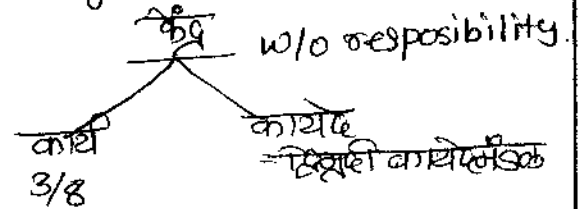 केंद्र w/o resposibility.
कार्य कायदे
= द्विगृही कायदेमंडळ
3/8